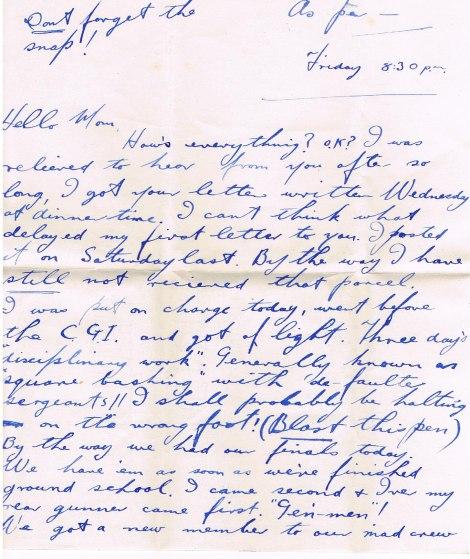 Don't forget the
snap!
As per —
Friday 8:30 p.m.
Hello Mom,
How's everything? O.K? I was
relieved to hear from you after so
long, I got your letter written Wednesday
at dinner time. I can't think what
delayed my first letter to you. I posted
it on Saturday last. By the way I have
still not recieved that parcel.
I was put on charge today, went before
the C.G.I. and got of light. Three day's
"disciplinary work". Generally known as
"square bashing" with de-faulter
sergeants!! I shall probably be halting
on the wrong foot! (Blast this pen)
By the way we had our finals today.
We have 'em as soon as we've finished
ground school. I came second & my
rear gunner came first. "Gen-men"!
We got a new member to our mad crew